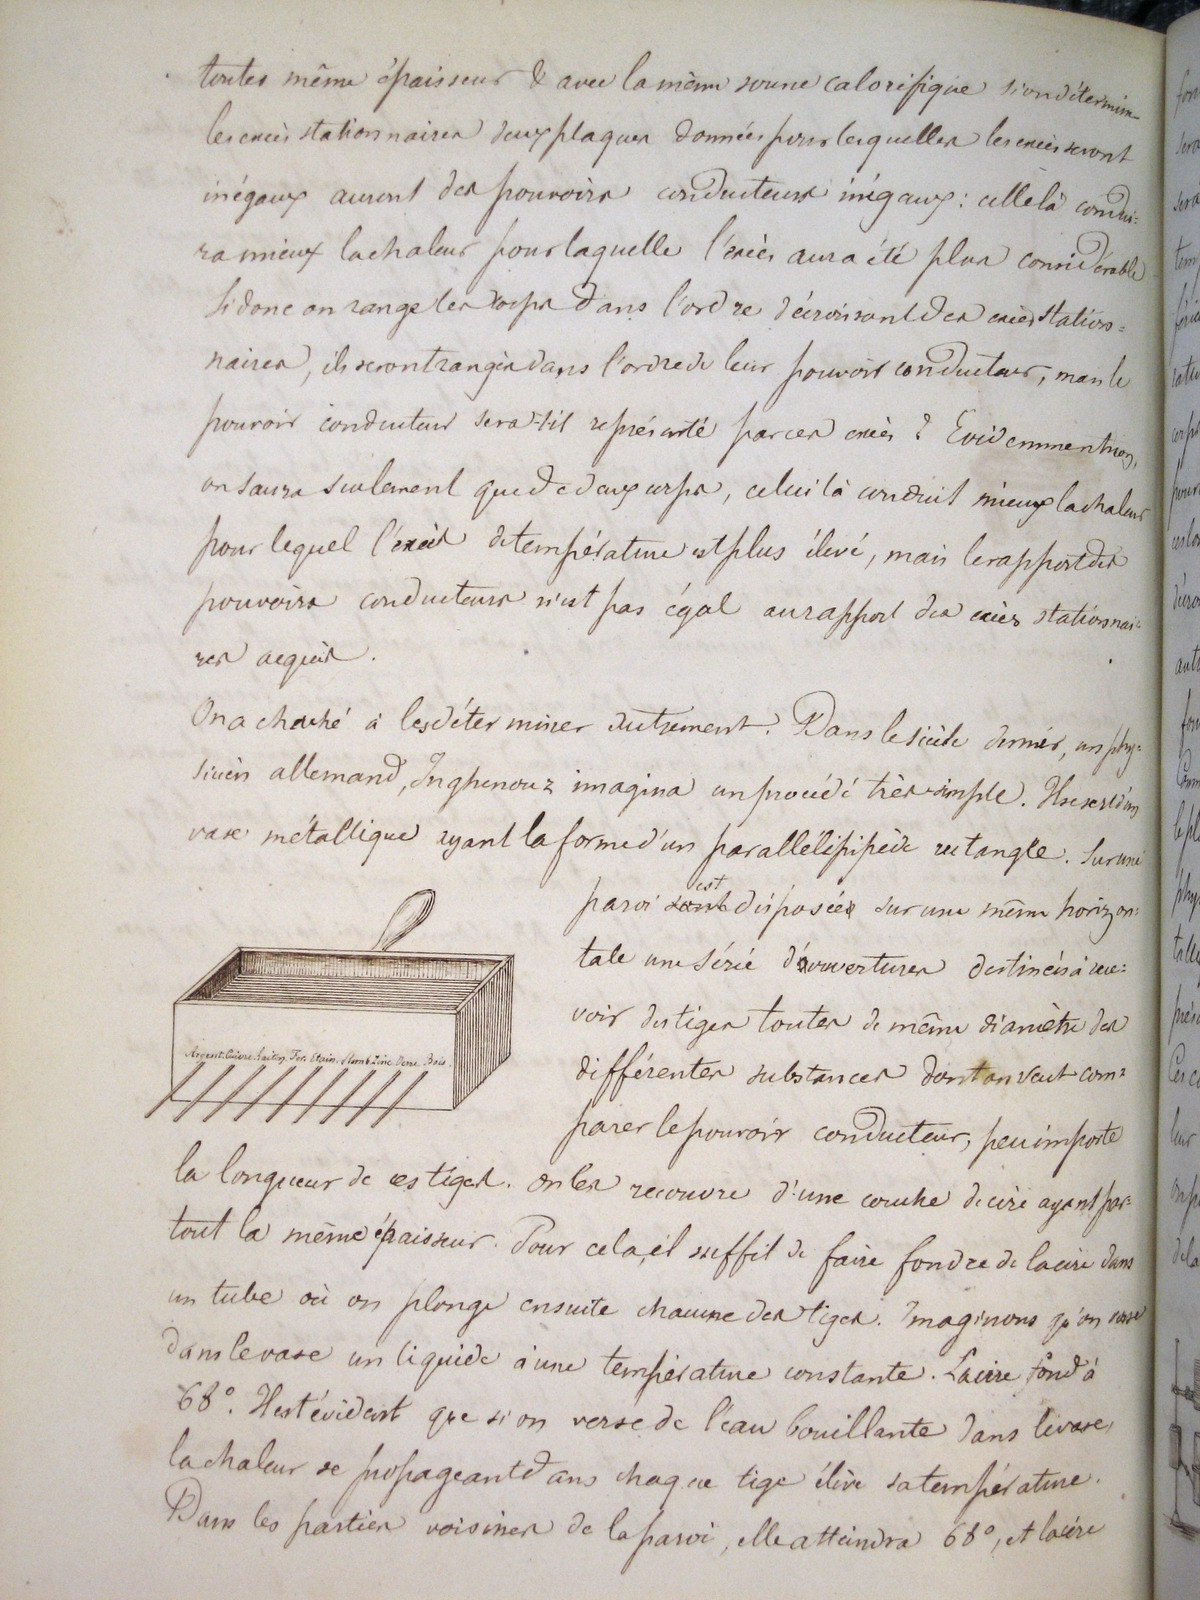 toutes même épaisseur & avec la même source calorifique si on détermine
les excès stationnaires deux plaques données pour lesquelles les excès seront
inégaux auront des pouvoirs conducteurs inégaux : celle là condui=
ra mieux la chaleur pour laquelle l'excès aura été plus considérable
Si donc on range les corps dans l'ordre décroissant des excès station=
naires, ils seront rangés dans l'ordre de leur pouvoir conducteur, mais le
pouvoir conducteur sera-t-il représenté par ces excès ? Evidemment non,
on saura seulement que de deux corps, celui là conduit mieux la chaleur
pour lequel l'excès de température est plus élevé, mais le rapport des
pouvoirs conducteurs n'est pas égal au rapport des excès stationnai=
res acquis.
On a cherché à les déterminer autrement. Dans le siècle dernier, un phy=
sicien allemand, Inghenouz imagina un procédé très-simple. Il se sert d'un
vase métallique ayant la forme d'un parallélipipède rectangle. Sur une
paroi sont est disposées sur une même horizon=
tale une série d'ouvertures destinées à rece=
voir des tiges toutes de même diamètre des
différentes substances dont on veut com=
parer le pouvoir conducteur, peu importe
Argent. Cuivre. Laiton. Fer. Etain. Plomb. Zinc. Verre. Bois.
la longueur de ces tiges. On les recouvre d'une couche de cire ayant par=
tout la même épaisseur. Pour cela, il suffit de faire fondre de la cire dans
un tube où on plonge ensuite chacune des tiges. Imaginons qu'on verse
dans le vase un liquide à une température constante. La cire fond à
68°. Il est évident que si on verse de l'eau bouillante dans le vase,
la chaleur se propageant dans chaque tige élève sa température.
Dans les parties voisines de la paroi, elle atteindra 68°, et la cire